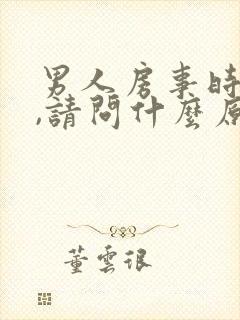 男人房事时
,請問什麼原
董雲很